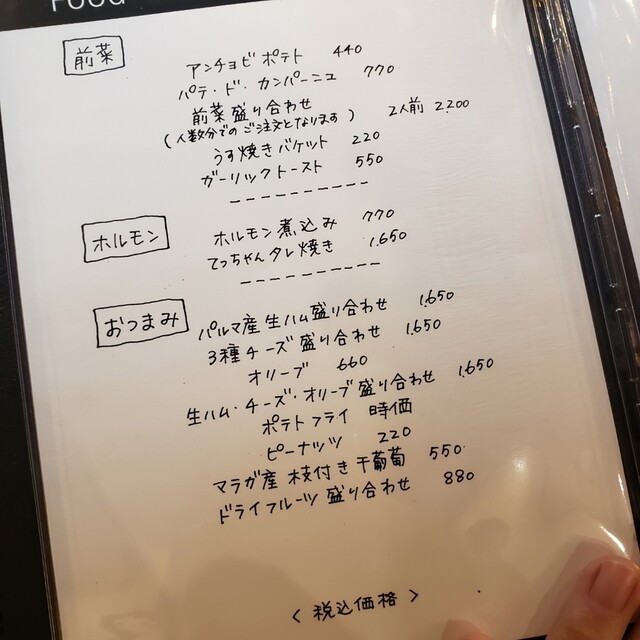 Food
前菜
アンチョビポテト 440
パテ・ド・カンパーニュ 770
前菜盛り合わせ
(人数分でのご注文となります) 2人前 2.200
うす焼きバケット 220
ガーリックトースト 550
ホルモン
ホルモン煮込み 770
てっちゃんタレ焼き 1.650
おつまみ
パルマ産生ハム盛り合わせ 1.650
3種チーズ盛り合わせ 1.650
オリーブ 660
生ハム・チーズ・オリーブ盛り合わせ 1.650
ポテトフライ 時価
ピーナッツ 220
マラガ産 枝付き干葡萄 550
ドライフルーツ盛り合わせ 880
<税込価格>